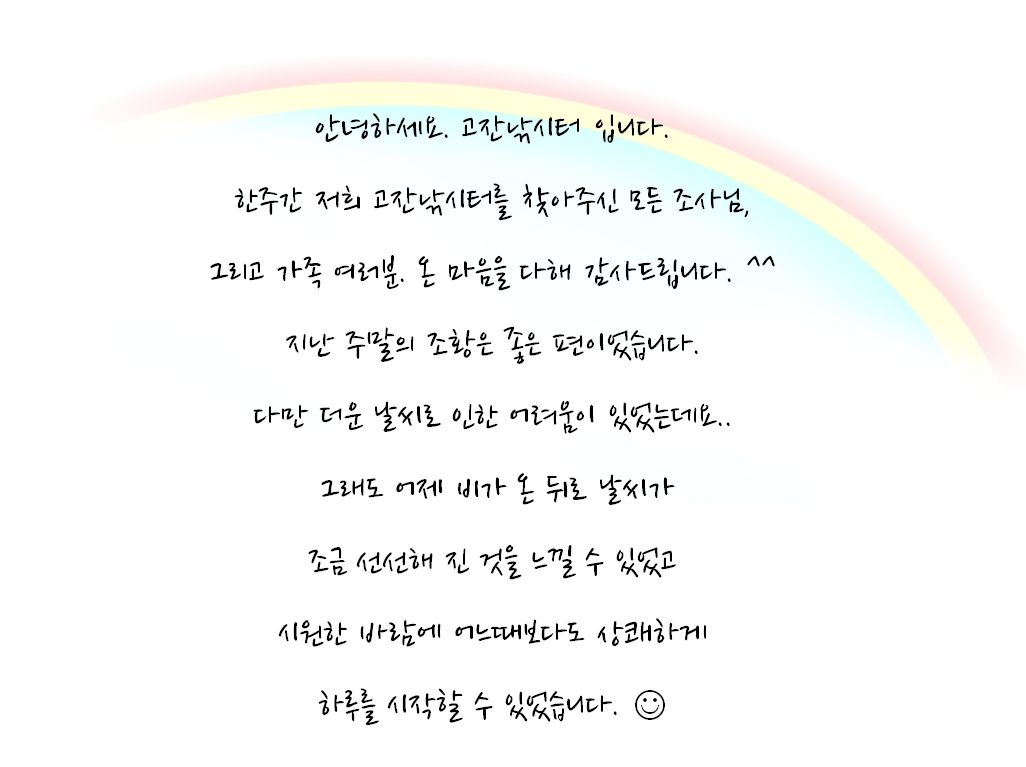 안녕하세요. 고잔낚시터 입니다.
한주간 저희 고잔낚시터를 찾아주신 모든 조사님,
그리고 가족 여러분. 온 마음을 다해 감사드립니다. ^^
지난 주말의 조황은 좋은 편이었습니다.
다만 더운 날씨로 인한 어려움이 있었는데요..
그래도 어제 비가 온 뒤로 날씨가
조금 선선해 진 것을 느낄 수 있었고
시원한 바람에 어느때보다도 상쾌하게
하루를 시작할 수 있었습니다. ☺